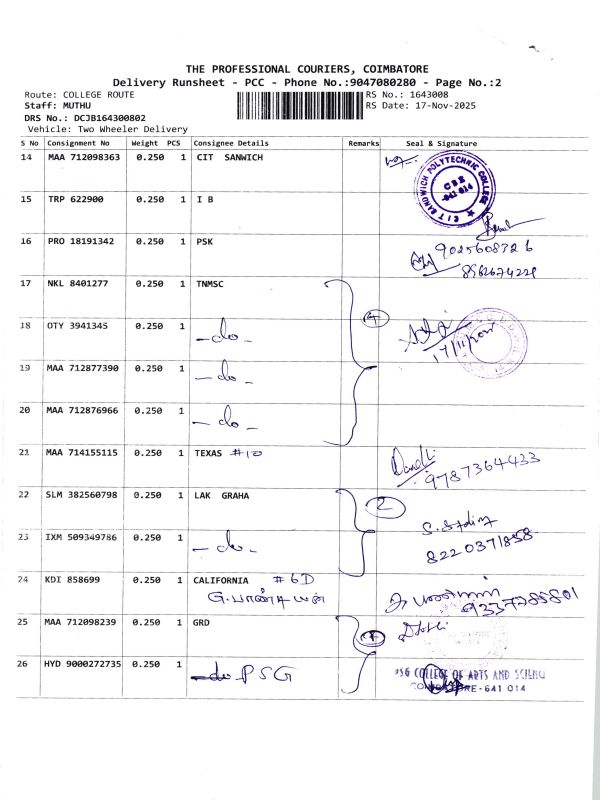 THE PROFESSIONAL COURIERS, COIMBATORE
Delivery Runsheet - PCC - Phone No.:9047080280 - Page No.:2
Route: COLLEGE ROUTE RS No.: 1643008
Staff: MUTHU RS Date: 17-Nov-2025
DRS No.: DCJB164300802
Vehicle: Two Wheeler Delivery
S No Consignment No Weight PCS Consignee Details Remarks Seal & Signature
14 MAA 712098363 0.250 1 CIT SANWICH
CIT SANDWICH POLYTECHNIC COLLEGE
CBE
-641 014
15 TRP 622900 0.250 1 I B
16 PRO 18191342 0.250 1 PSK 9025608326
8961674221
17 NKL 8401277 0.250 1 TNMSC
18 OTY 3941345 0.250 1 -do- 4
17/11/2025
19 MAA 712877390 0.250 1 -do-
20 MAA 712876966 0.250 1 -do-
21 MAA 714155115 0.250 1 TEXAS #10
9787364433
22 SLM 382560798 0.250 1 LAK GRAHA 2
23 IXM 509349786 0.250 1 -do- 8220371858
24 KDI 858699 0.250 1 CALIFORNIA #6D
G.பாண்டியன் 9337785801
25 MAA 712098239 0.250 1 GRD
26 HYD 9000272735 0.250 1 -do PSG
PSG COLLEGE OF ARTS AND SCIENCE
COIMBATORE-641 014